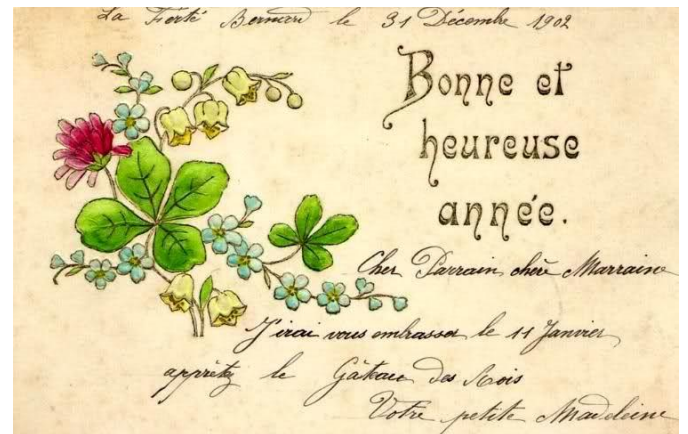 La Ferté Bernard le 31 Décembre 1902
Bonne et
heureuse
année.
Cher Parrain, chère Marraine
J'irai vous embrasser le 11 Janvier,
apprêtez le Gâteau des Rois
Votre petite Madeleine